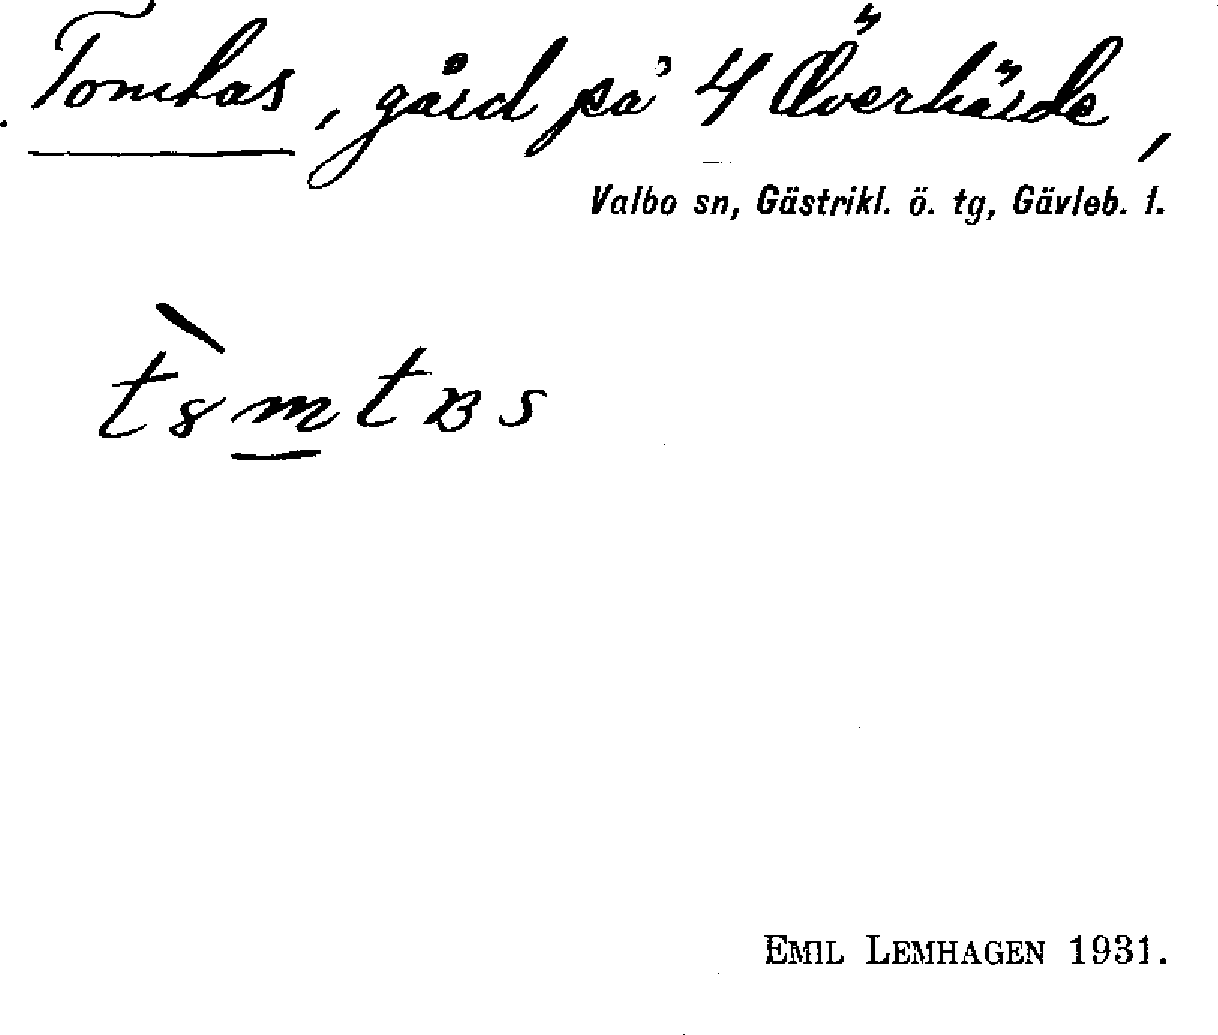 Tomtas, gård på 4 Överhärde,
Valbo sn, Gästrikl. ö. tg, Gävleb. l.
EMIL LEMHAGEN 1931.